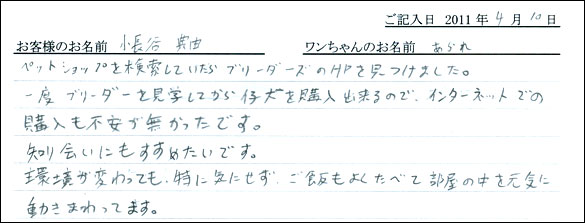 ご記入日 2011年4月10日
お客様のお名前 小長谷 典由 ワンちゃんのお名前 あられ
ペットショップを検索していたらブリーダーズのHPを見つけました。
一度ブリーダーを見学してから仔犬を購入出来るので、インターネットでの
購入も不安が無かったです。
知り会いにもすすめたいです。
環境が変わっても、特に気にせず、ご飯もよくたべて部屋の中を元気に
動きまわってます。